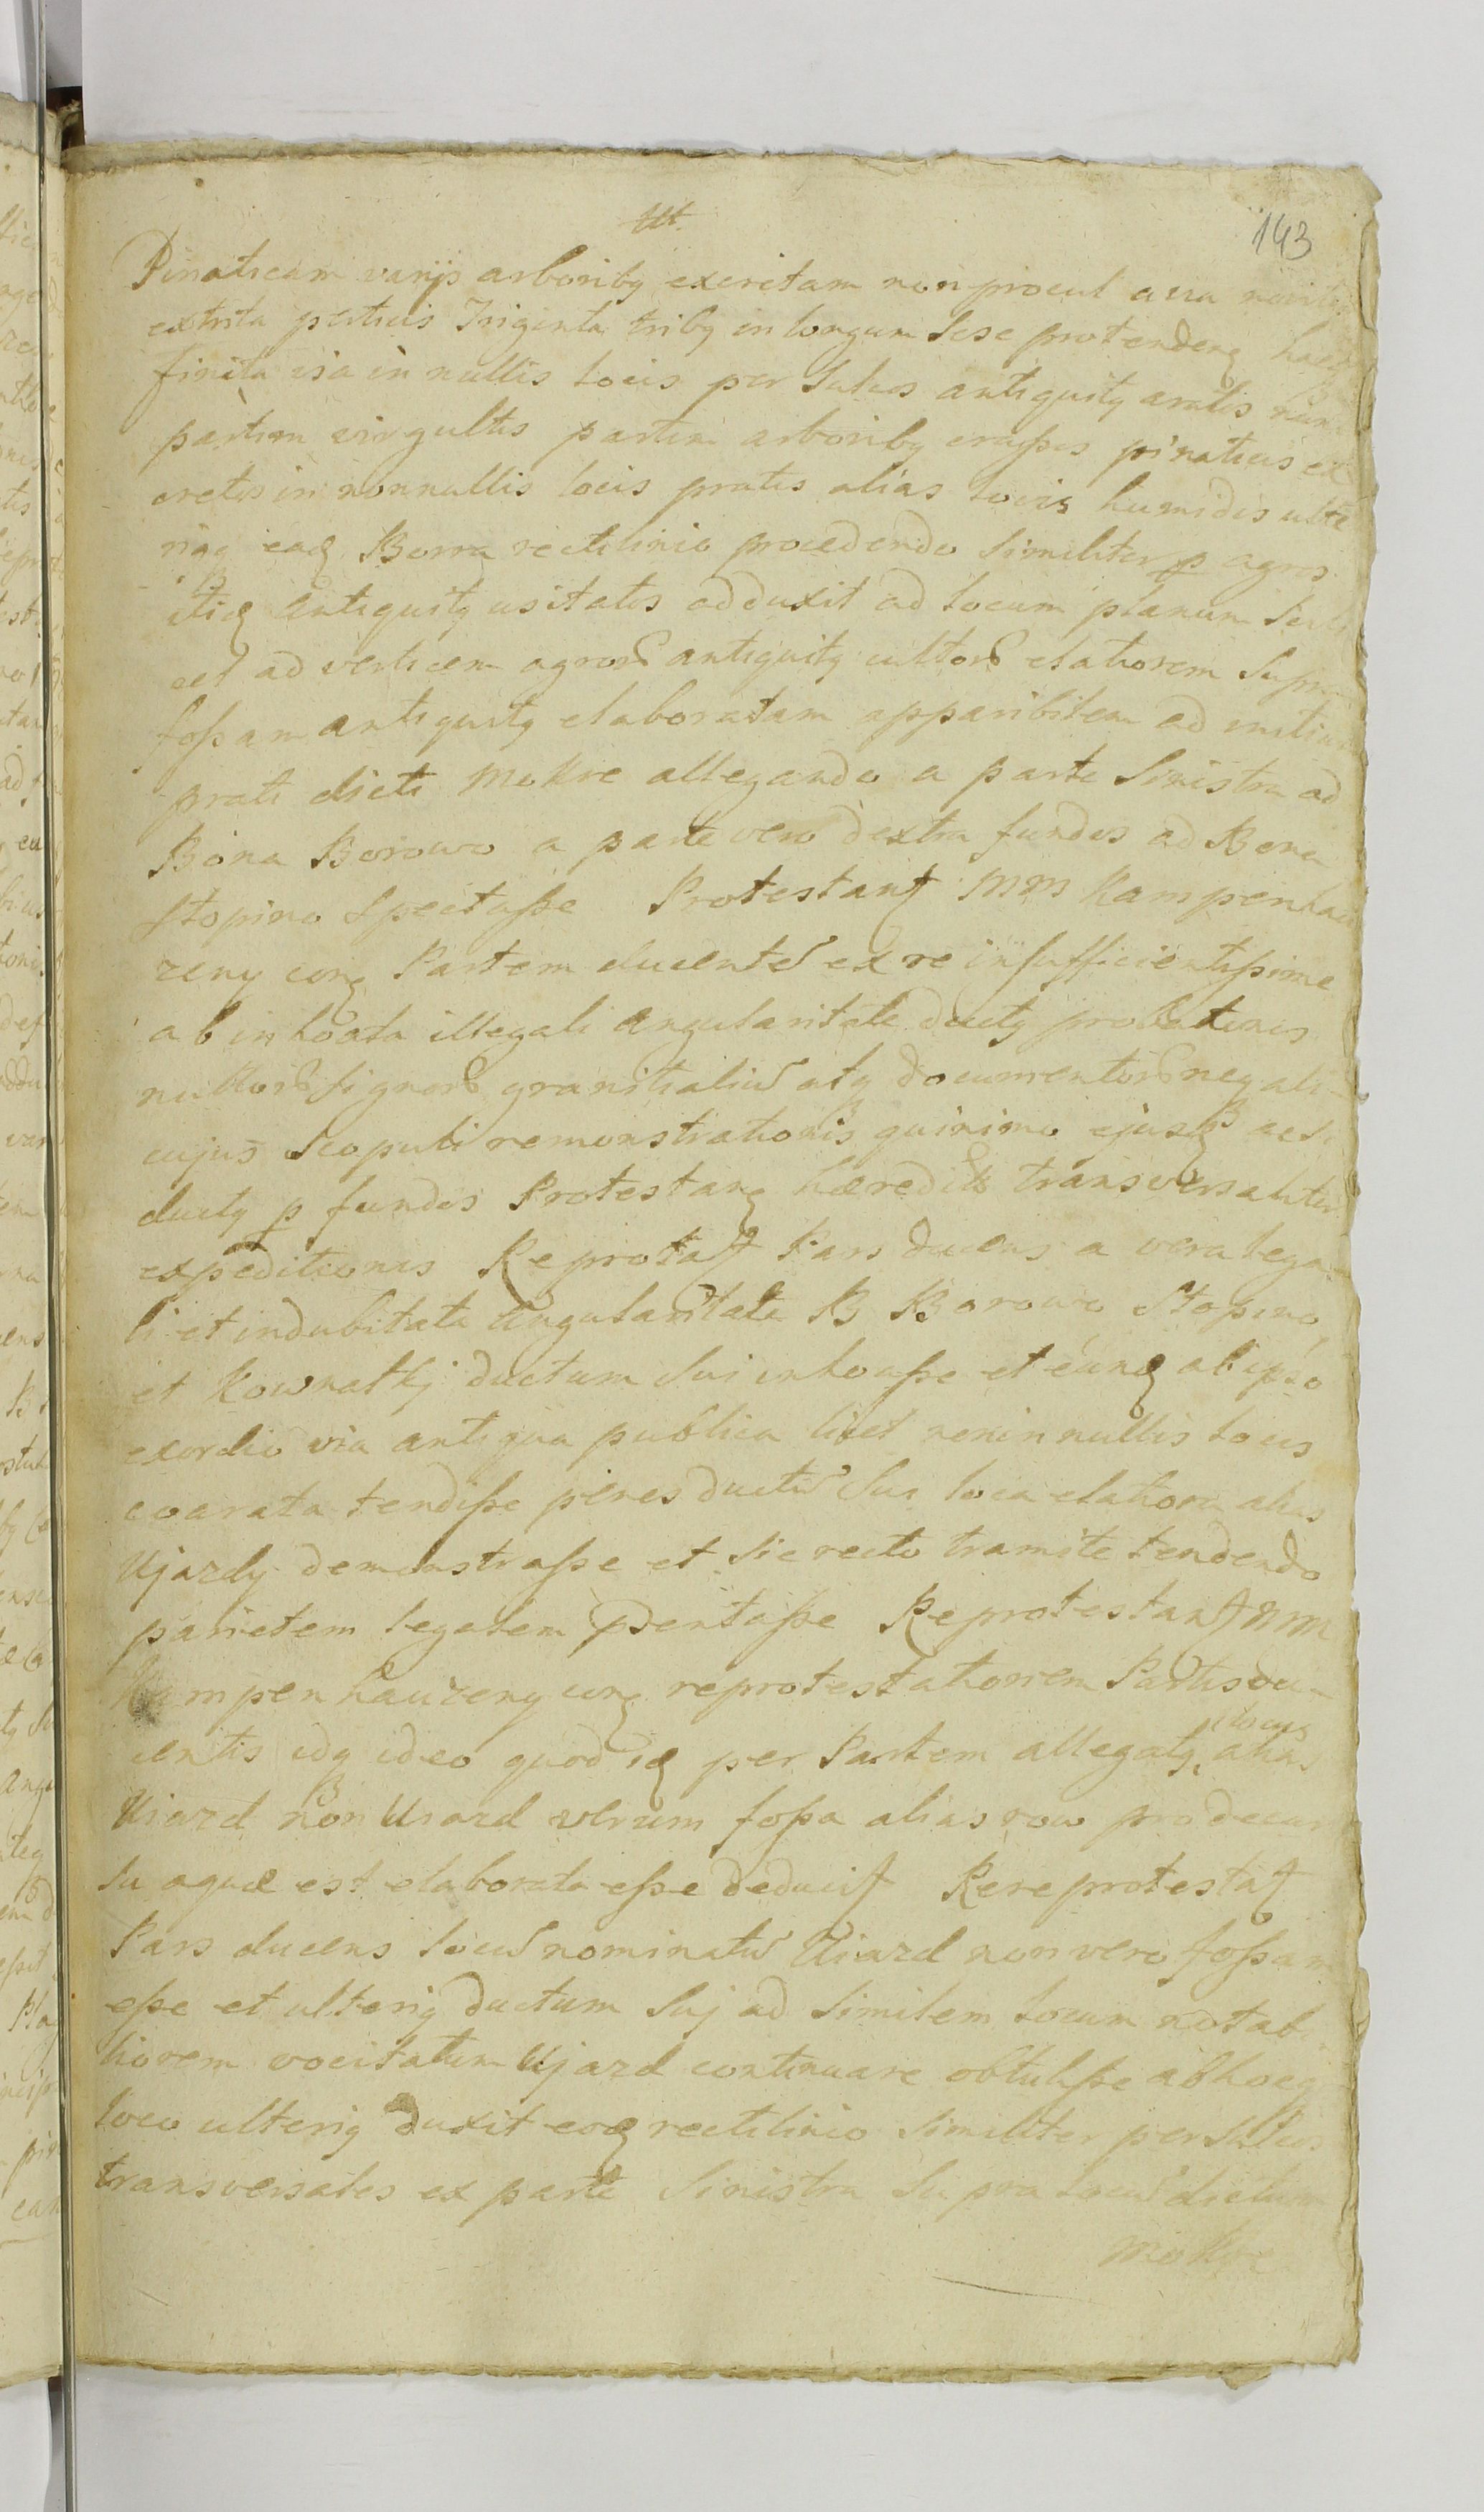 143
Pinaticam varijs arboribq excretam non procul a via noviter
extrita perticis Triginta tribq in longum sese protenden
finita via in nullis locis per sulcos antiquitq aratis nunc
partim virgultis partim arboribq crassis pinaticis ex
cretos in nonnullis locis pratis alias locis humidis ulte
riq eaq Borra rectilinio procedendo similiter p agros
itiq antiquitq usitatos adduxit ad locum planum
ad verticem agror antiquitq cultor elatiorem supra
fossam antiquitq elaboratam apparibilem ad initium
prati dicti Mokre allegando a parte sinistra ad
Bona Borowo a parte vero dextra fundos ad Bona
Stopino spectasse Protestant MM Kampenhau
zeny cong Partem ducente ex re insufficientissime
ab inhoata illegali angularitate ductq probationis
nullor signor granitialiu atq documentor neq ali-
cujus scopuli remonstrationis quinimo ejusq
ductq p fundos Protestanq hæredit transversaliter
expeditionis Reprotat Pars ducens a vera lega-
li et indubitata angularitate B Borowo Stopino
et Kownatkj ductum sui inhoasse et eunq ab ipso
exordio via antiqua publica licet non in nullis locis
coarata tendisse penes ductu sui loca elatiora alias
Ujazdy demonstrasse et sic recto tramite tendendo
parietem legalem pdentasse Reprotestant MM
Kampenhauzeny cong reprotestationem Partis du-
centis idq ideo quod iq per Partem allegatq locus alias
Uiazd non Uiazd verum fossa alias row pro decur
su aquæ est elaborata esse deducit Rereprotestat
Pars ducens locu nominatu Uiazd non vero fossam
esse et ulteriq ductum suj ad similem locum notabi
liorem vocitatum Ujazd continuare obtulisse ab hocq
loco ulteriq duxit eoq rectilinio similiter per sulcos
transversales ex parte sinistra supra locu dictum
Mokre